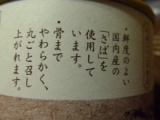 ・鮮度のよい
国内産の
「さば」を
使用して
います。
・骨まで
やわらかく、
丸ごと召し
上がれます。